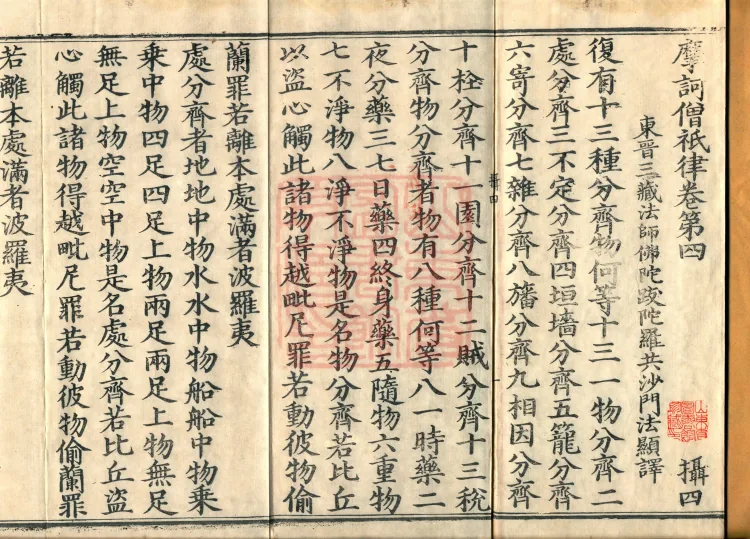 摩訶僧祇律卷第四 攝四
東晉三藏法師佛陀跋陀羅共沙門法顯譯
復有十三種分齊物何等十三一物分齊二
處分齊三不定分齊四垣墻分齊五籠分齊
六寄分齊七雜分齊八旛分齊九相因分齊
十栓分齊十一園分齊十二賊分齊十三稅
分齊物分齊者物有八種何等八一時藥二
夜分藥三七日藥四終身藥五隨物六重物
七不淨物八淨不淨物是名物分齊若比丘
以盜心觸此諸物得越毗尼罪若動彼物偷
蘭罪若離本處滿者波羅夷
處分齊者地地中物水水中物船船中物乘
乘中物四足四足上物兩足兩足上物無足
無足上物空空中物是名處分齊若比丘盜
心觸此諸物得越毗尼罪若動彼物偷蘭罪
若離本處滿者波羅夷
攝四